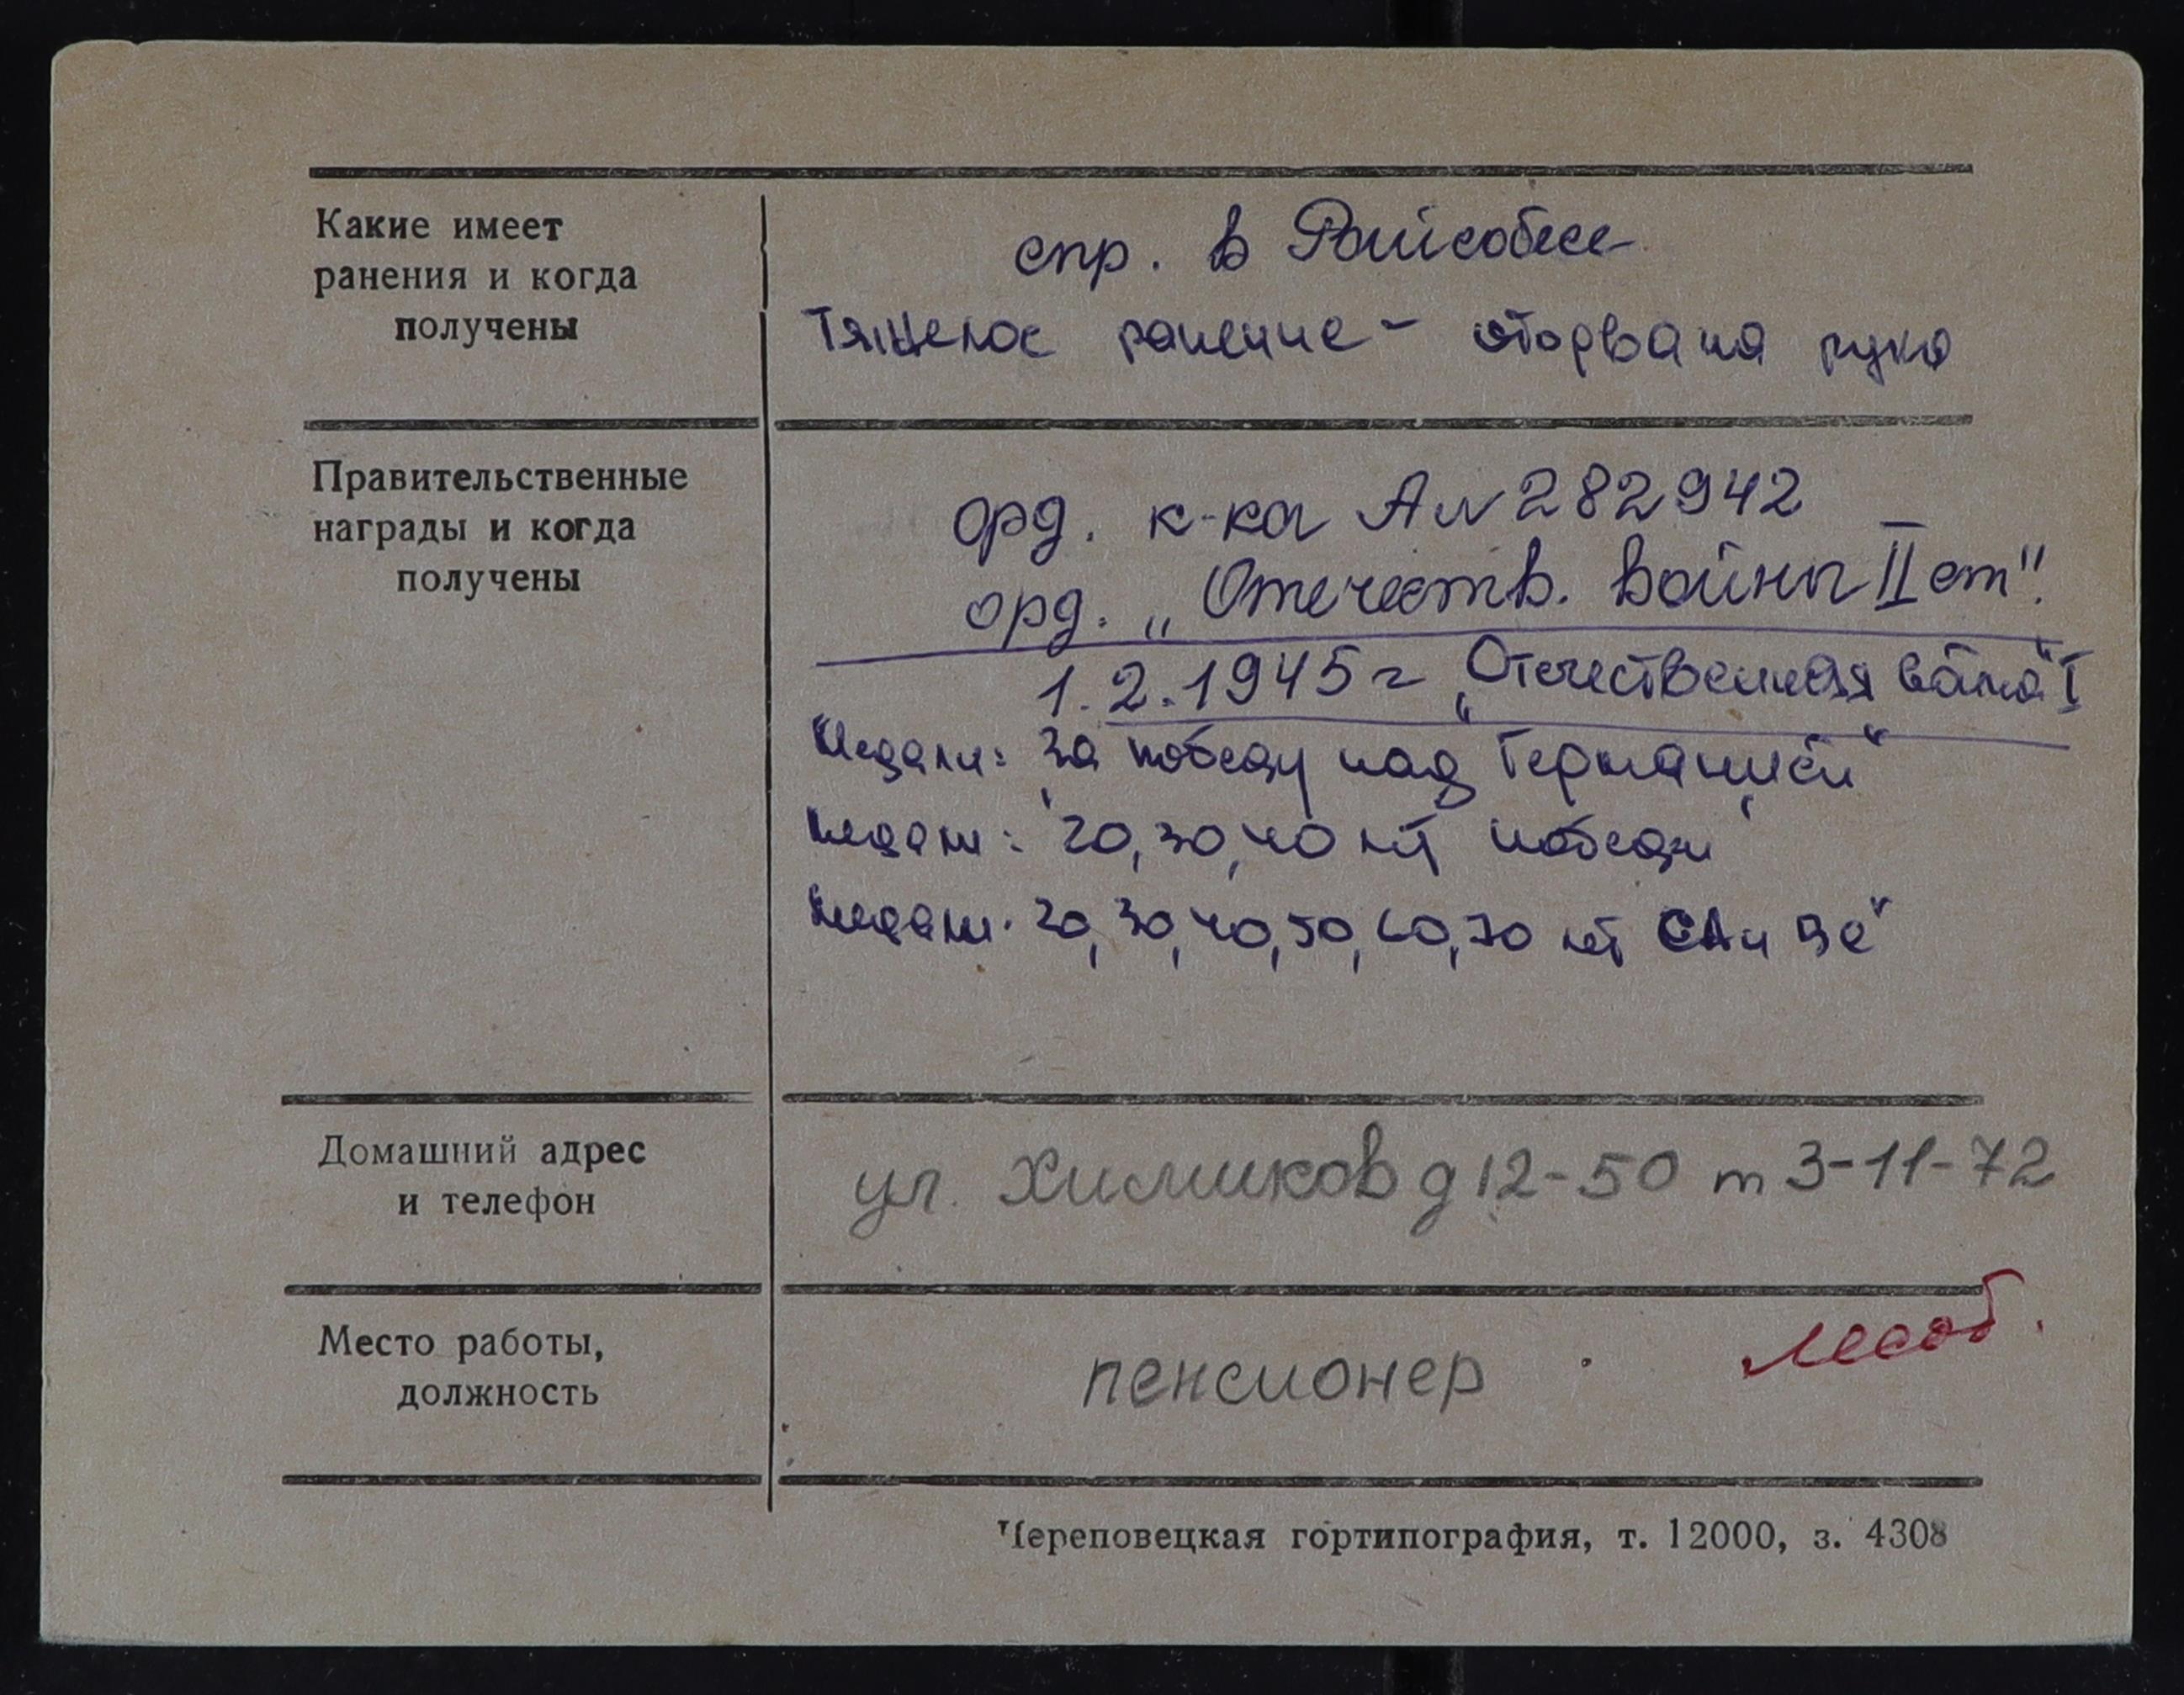 Какие имеет
ранения и когда
получены
спр. в Райсобесе
Тяжелое ранение - оторвана рука
Правительственные
награды и когда
получены
орд. к-ка А№282942
орд. „Отечеств. войны II ст".
1.2.1945 г „Отечественная война" I
Медали: „За победу над Германией"
Медали: „20, 30, 40 лет победы"
Медали. 20, 30, 40, 50, 60, 70 лет СА и
Домашний адрес
и телефон
ул. Химиков д 12-50 т 3-11-72
Место работы,
должность
пенсионер
Череповецкая гортипография, т. 12000, з. 4308